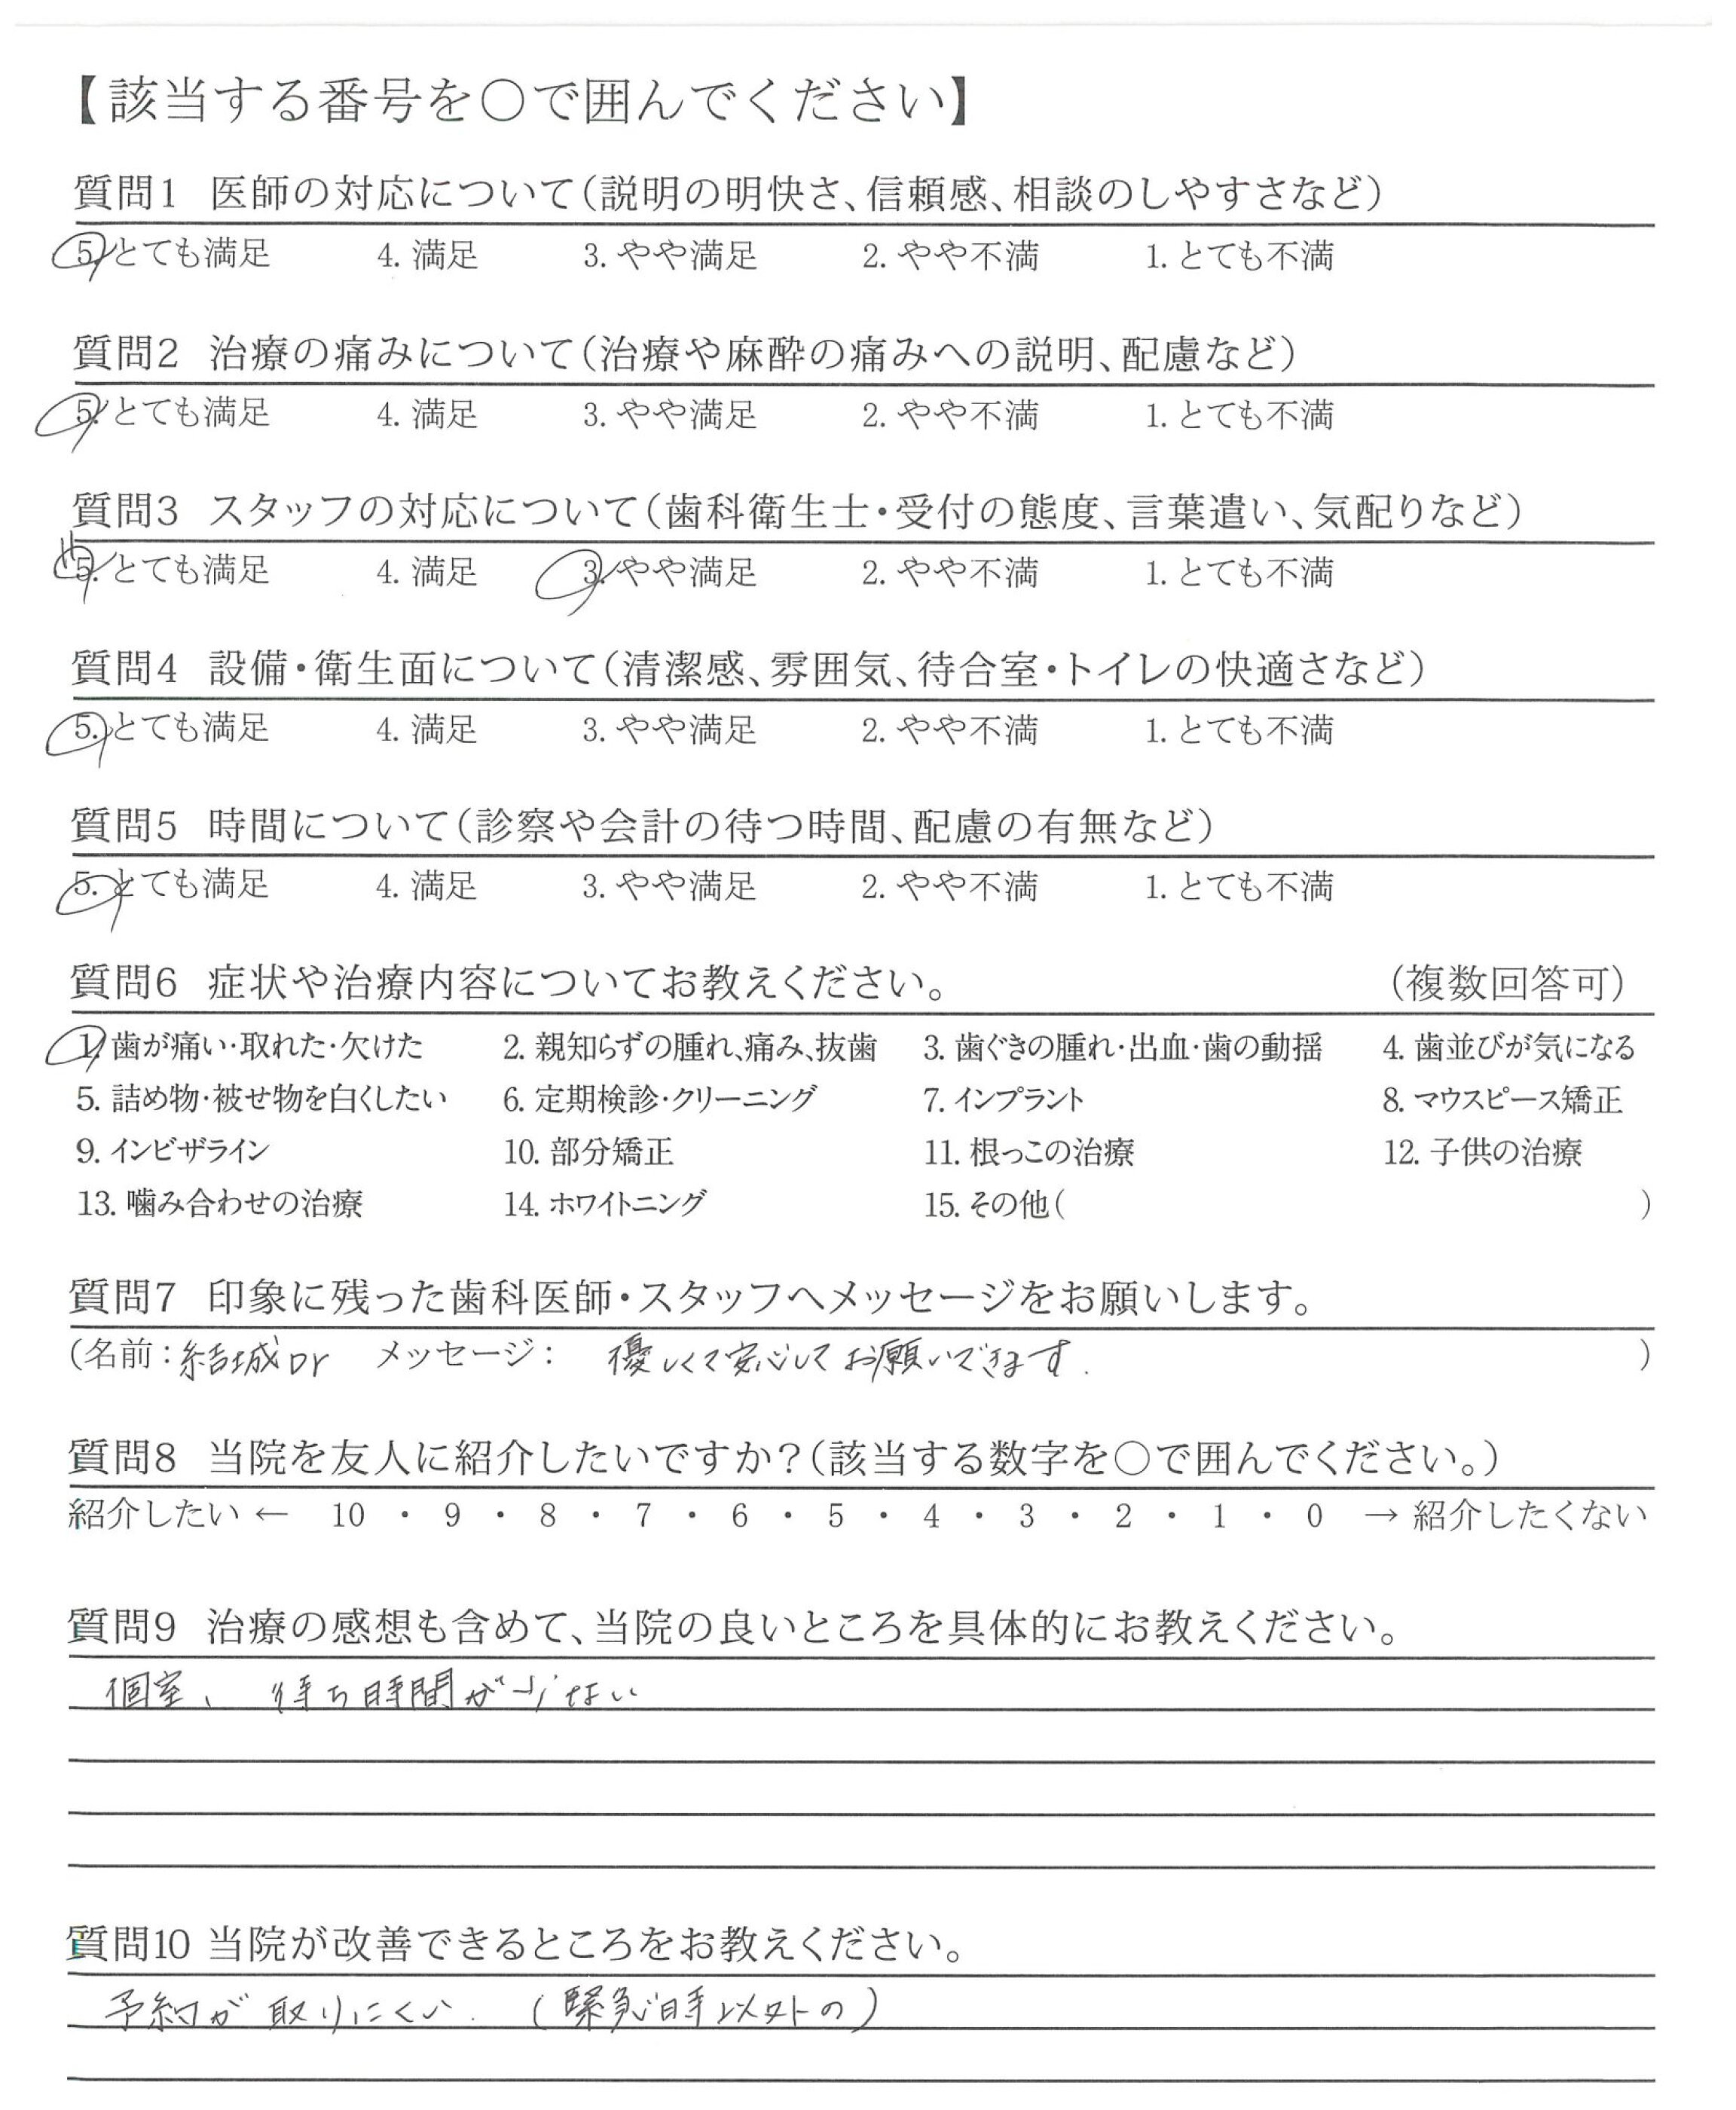 【該当する番号を○で囲んでください】
質問1 医師の対応について(説明の明快さ、信頼感、相談のしやすさなど)
5. とても満足 4. 満足 3. やや満足 2. やや不満 1. とても不満
質問2 治療の痛みについて(治療や麻酔の痛みへの説明、配慮など)
5. とても満足 4. 満足 3. やや満足 2. やや不満 1. とても不満
質問3 スタッフの対応について(歯科衛生士・受付の態度、言葉遣い、気配りなど)
5. とても満足 4. 満足 3. やや満足 2. やや不満 1. とても不満
質問4 設備・衛生面について(清潔感、雰囲気、待合室・トイレの快適さなど)
5. とても満足 4. 満足 3. やや満足 2. やや不満 1. とても不満
質問5 時間について(診察や会計の待つ時間、配慮の有無など)
5. とても満足 4. 満足 3. やや満足 2. やや不満 1. とても不満
質問6 症状や治療内容についてお教えください。 (複数回答可)
1. 歯が痛い・取れた・欠けた 2. 親知らずの腫れ、痛み、抜歯 3. 歯ぐきの腫れ・出血・歯の動揺 4. 歯並びが気になる
5. 詰め物・被せ物を白くしたい 6. 定期検診・クリーニング 7. インプラント 8. マウスピース矯正
9. インビザライン 10. 部分矯正 11. 根っこの治療 12. 子供の治療
13. 噛み合わせの治療 14. ホワイトニング 15. その他( )
質問7 印象に残った歯科医師・スタッフへメッセージをお願いします。
(名前:結城Dr メッセージ: 優しくて安心してお願いできます. )
質問8 当院を友人に紹介したいですか?(該当する数字を○で囲んでください。)
紹介したい ← 10 ・ 9 ・ 8 ・ 7 ・ 6 ・ 5 ・ 4 ・ 3 ・ 2 ・ 1 ・ 0 → 紹介したくない
質問9 治療の感想も含めて、当院の良いところを具体的にお教えください。
個室、待ち時間が少ない
質問10 当院が改善できるところをお教えください。
予約が取りにくい. (緊急時以外の)